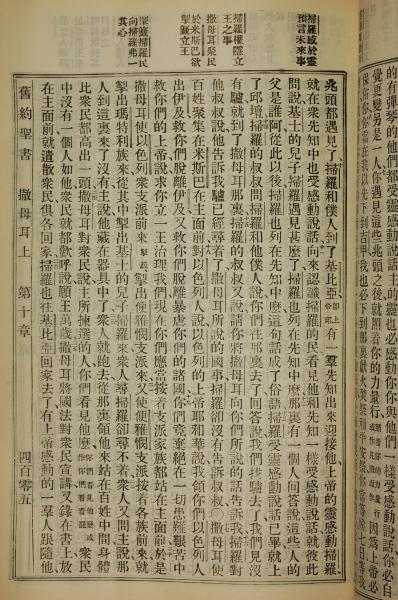 的有彈琴的他們都受靈感動說話主的靈也必感動你你與他們一樣受感動說話你必自
覺更變另是一人你遇見這些兆頭之後就照着你的力量行
因爲上帝必
掃羅感於靈
預言未來事
王之事
撒母耳聚民
於米斯巴欲
立王
兆頭都遇見了掃羅和僕人到了基比亞有一羣先知出來迎接他上帝的靈感動掃羅
就在衆先知中也受感動說話向來認識掃羅的民看見他和先知一樣受感動說話就彼此
問說基士的兒子掃羅遇見甚麼了掃羅也列在先知中麼那裏有一個人回答說這些人的
父是誰阿從此以後掃羅也列在先知中麼這句話成了俗語掃羅受靈感動說話已畢就上
了邱壇掃羅的叔叔問掃羅和他僕人說你們往那裏去了回答說我們找驢去了我們見沒
有驢就到了撒母耳那裏掃羅的叔叔又說請你將撒母耳向你們所說的話告訴我掃羅對
他叔叔說他告訴我驢已經尋着了撒母耳所說的國事掃羅卻沒有告訴叔叔○撒母耳使
百姓聚集在米斯巴在主面前對以色列人說以色列的上帝耶和華說我領你們以色列人
出伊及救你們脫離伊及又救你們脫離暴虐你們的諸國你們竟棄絕在一切患難艱苦中
救你們的上帝說求你立一王治理我們現在你們應當按着支派家族都站在主面前於是
撒母耳使以色列衆支派前來掣籤掣出便雅憫支派來又使便雅憫支派按着各族前來就
掣出瑪特利族來從其中掣出基士的兒子掃羅來衆人尋掃羅卻尋不着衆人又問主說那
人到這裏來了沒有主說他藏在器具中了衆人就跑去從那裏領他來站在百姓中間身體
比衆民都高出一頭撒母耳對衆民說主所揀選的人你們看見他麼
衆民
中沒有一個人如他衆民就都歡呼說願王萬歲撒母耳將國法對衆民宣講又錄在書上放
在主面前就遣散衆民俱各回家掃羅也往基比亞回家去了有上帝感動的一羣人跟隨他
舊約聖書　撒母耳上　第十章　四百零五